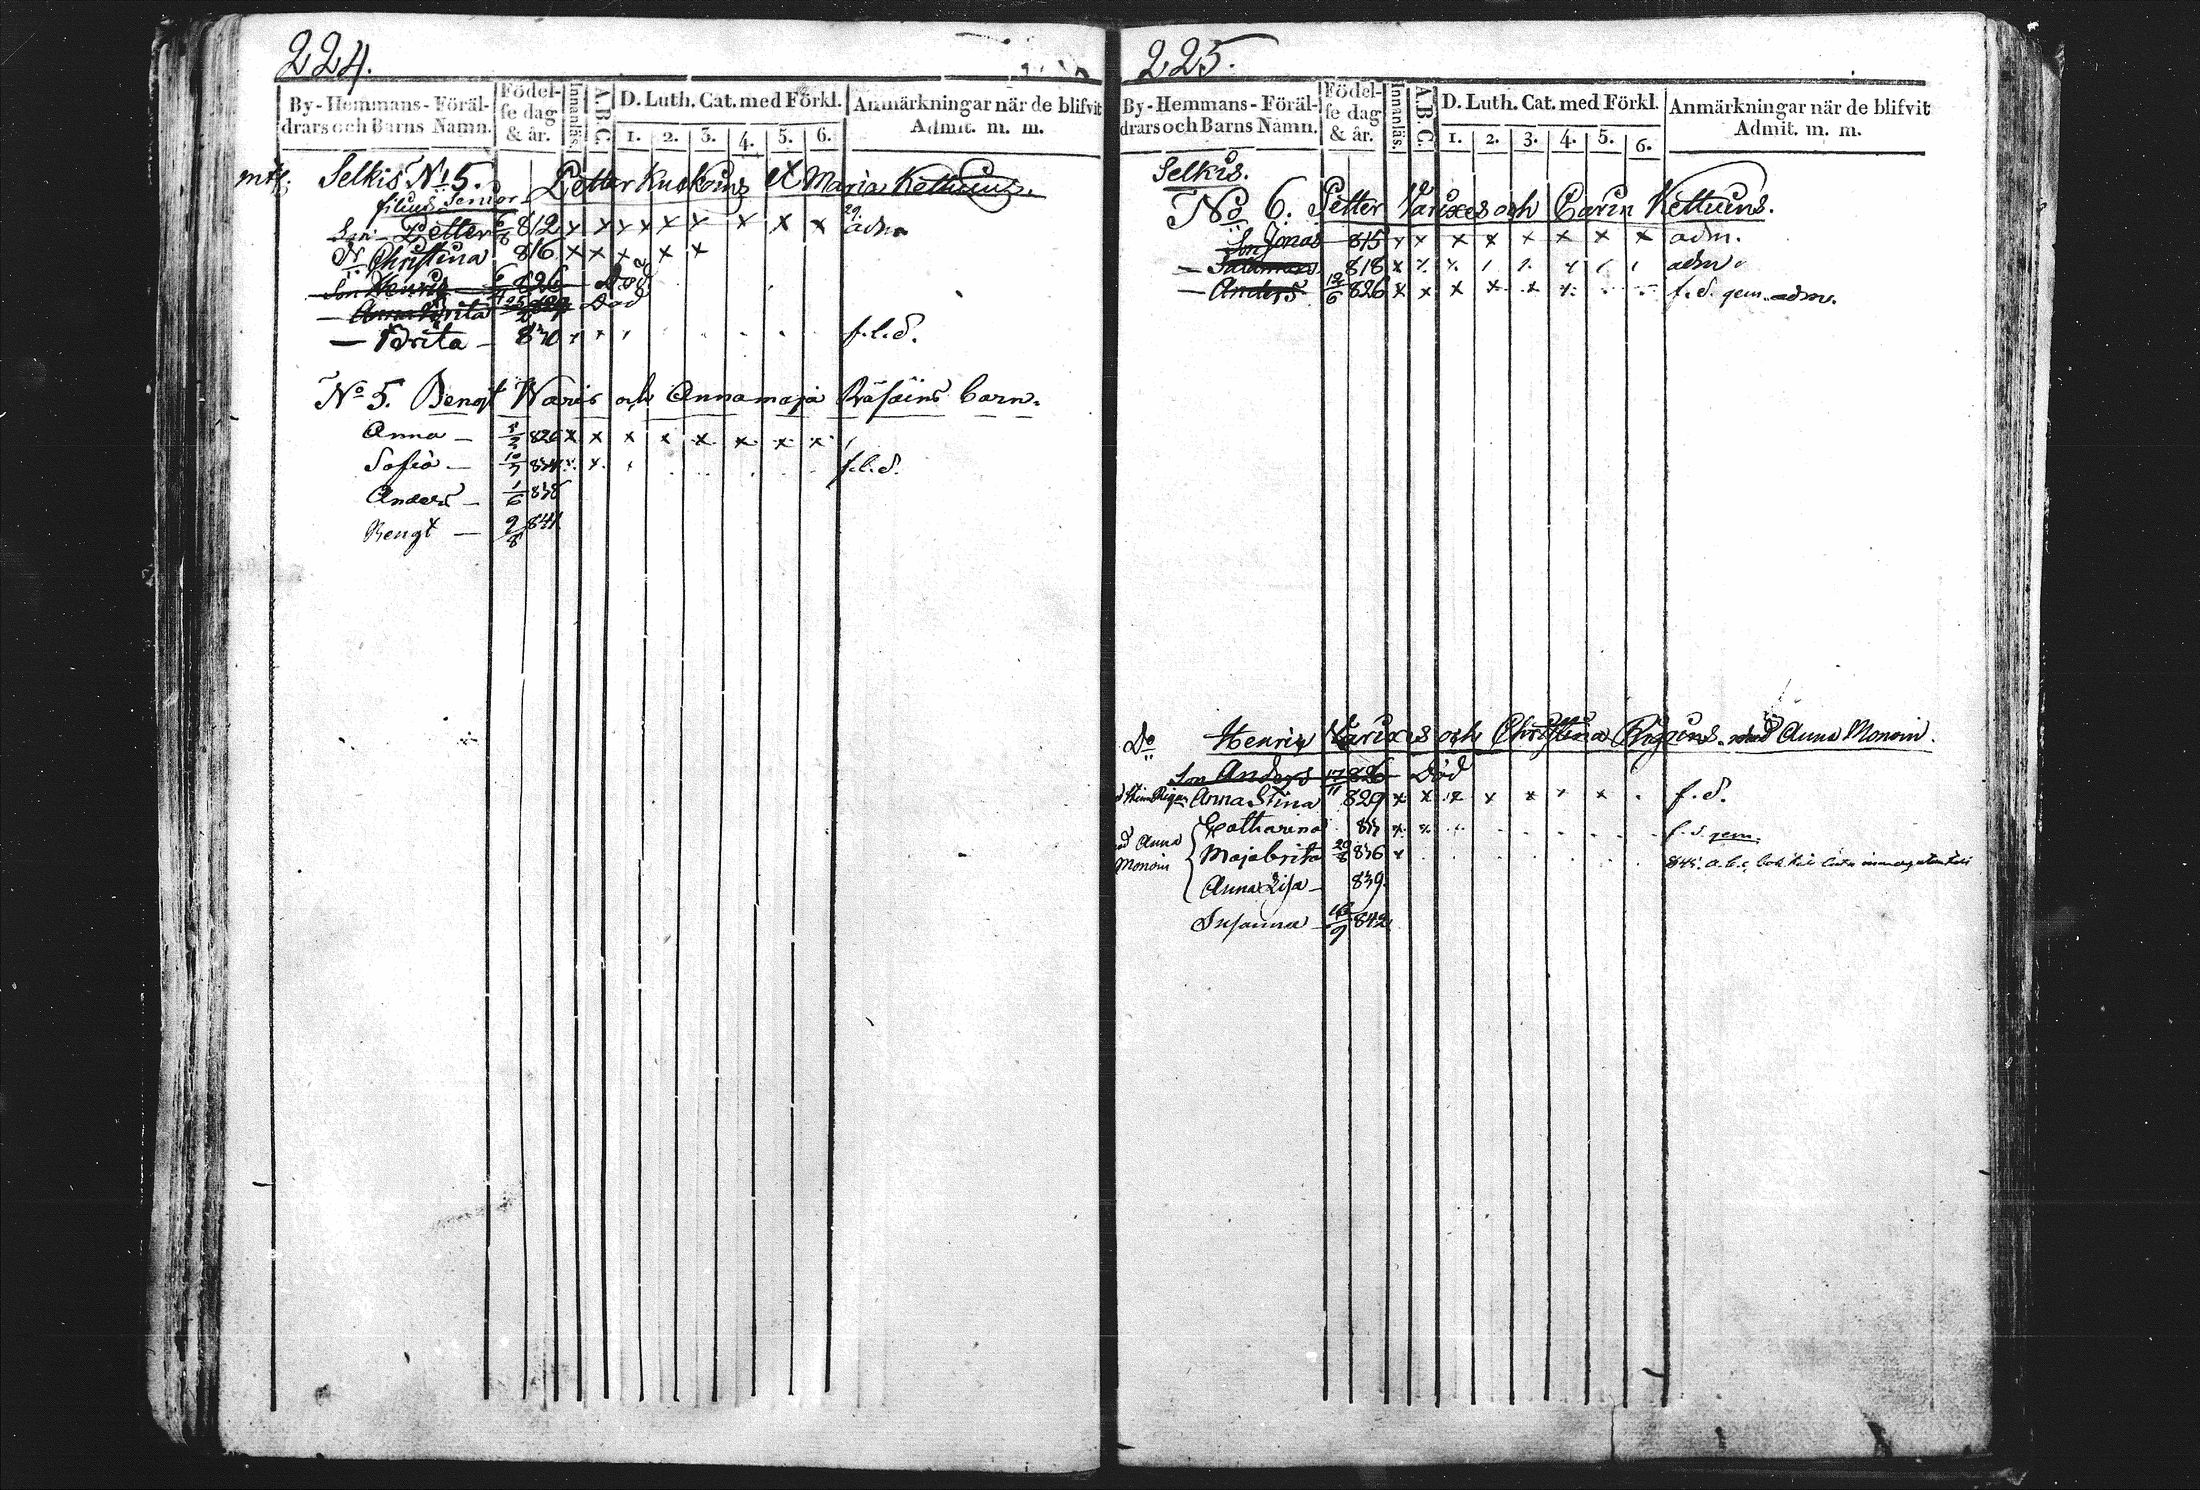 224.
By-Hemmans-Föräl-
drars och Barns Namn.
Födel-
se dag
& år.
Innanläs.
A.B.C.
D. Luth. Cat. med Förkl.
1. 2. 3. 4. 5. 6.
Anmärkningar när de blifvit
Admit. m. m.
Selkis No 5. Petter Kuskoins Maria Kettuins.
filius Senior
Son Petter 6/8 812 x x x x x x x x adm
Christina 816 x x x x x
Son Henric 826 Död
Anna Brita Död
— Brita — 830 f.l.d.
No 5. Bengt Waris och Annamaja Räsäins barn.
Anna — 826 x x x x x x x x
Sofia — 10/7 f.l.d.
Anders — 1/6 838
Bengt — 9/8 841
225.
By-Hemmans-Föräl-
drars och Barns Namn.
Födel-
se dag
& år.
Innanläs.
A.B.C.
D. Luth. Cat. med Förkl.
1. 2. 3. 4. 5. 6.
Anmärkningar när de blifvit
Admit. m. m.
Selkis.
No 6. Petter Varixes och Carin Kettuins.
Son Jonas 815 x x x x x x x x adm.
— 818 adm.
— Anders 12/6 826 x x x x x x f.d. gem. adm.
Do Henric Varixes och Christina med Anna Monoin.
Son Anders 17/11 826 Död
Anna Stina 829 x x x x x x x f.d.
Catharina f.d. gem.
ed Anna
Monoin
Majabrita 29/8 836 x
Anna Lisa — 839.
Susanna — 16/9 842